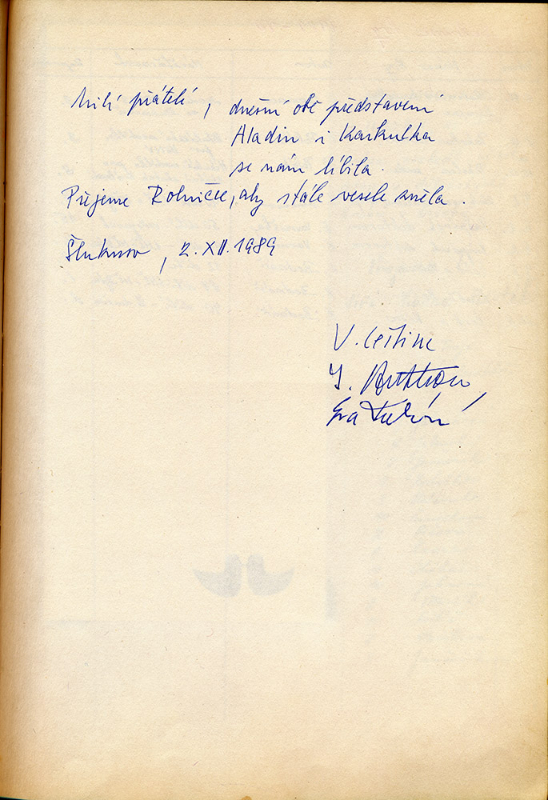 Milí přátelé, dnešní obě představení
Aladin i Karkulka
se nám líbila.
Přejeme Rolničce, aby stále vesele zněla.
Šluknov, 2. XII. 1989
V. Čeština
J.
Eva